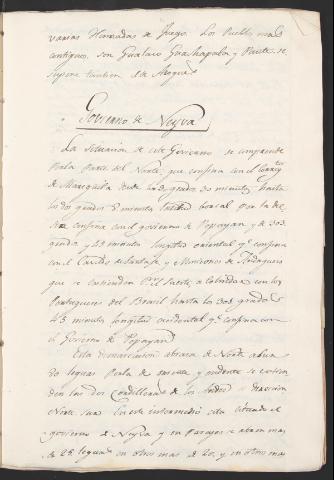 varias Haradas de fuego. Los Pueblos mas
contiguos, son Gualaco Guachapala y Paute se
supone tambien
Govierno de Neyva
La situacion de este Govierno se comprende
Por la Parte del Norte, que confina con el
de Mariquita desde los grados minutos hasta
los dos grados 5 minutos latitud boreal por la de
Sur confina con el govierno de Popayan y de 303
grados, y 45 minutos longitud oriental qe confina
con el de y Misiones de Andaquies
que se extienden con los
Portugueses del Brasil hasta los 302 grados
45 minutos longitud occidental qe confina con
el Govierno de Popayan
Esta demarcacion abraza de Norte a Sur
leguas Por la de oriente y occidente se extien
den las dos Cordilleras de los Andes a direccion
Norte Sur. En este intermedio esta situado el
govierno de Neyva y en Parages se abren mas
de 25 leguas en otros mas de 20, y en otros mas